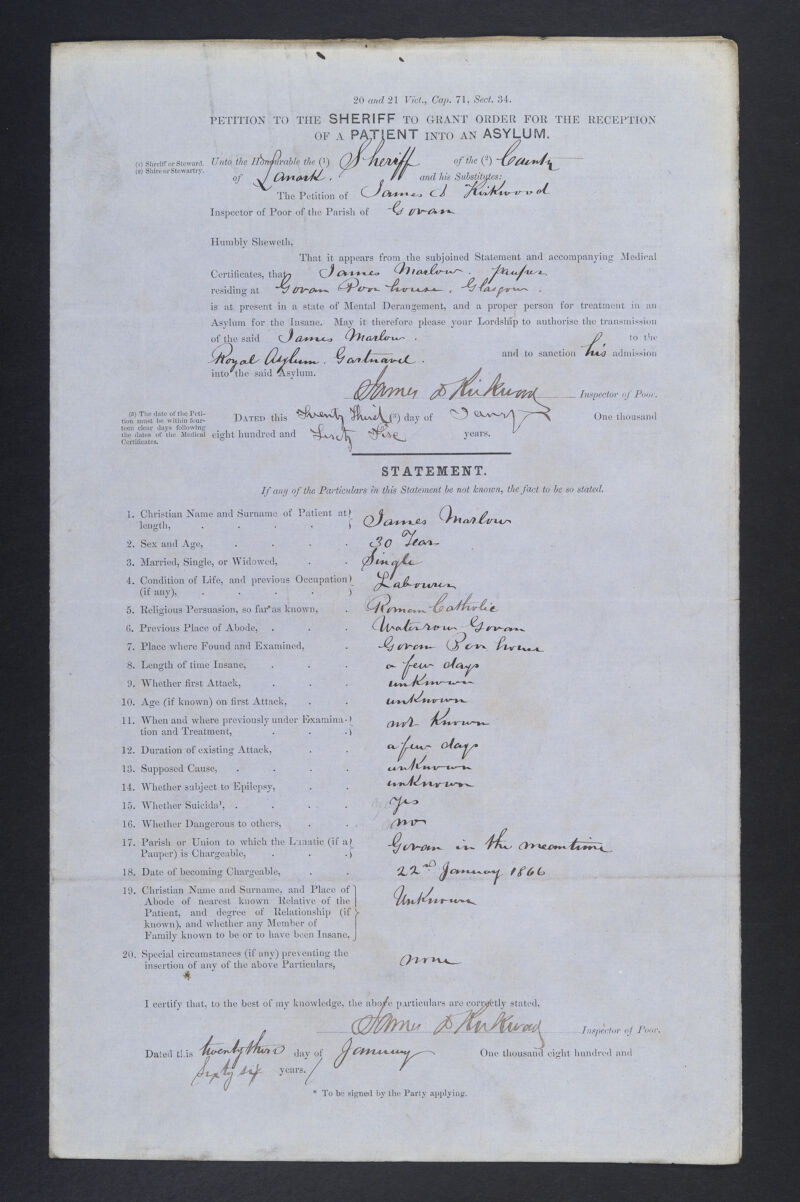 20 and 21 Vict., Cap. 71, Sect. 34.
PETITION TO THE SHERIFF TO GRANT ORDER FOR THE RECEPTION
OF A PATIENT INTO AN ASYLUM.
(1) Sheriff or Steward.
(2) Shire or Stewartry.
Unto the Honourable the (1) Sheriff of the (2) County
of Lanark. and his Substitutes:
The Petition of James D Kirkwood
Inspector of Poor of the Parish of Govan
Humbly Sheweth,
That it appears from the subjoined Statement and accompanying Medical
Certificates, that James Marlow. pauper
residing at Govan Poor house, Glasgow.
is at present in a state of Mental Derangement, and a proper person for treatment in an
Asylum for the Insane. May it therefore please your Lordship to authorise the transmission
of the said James Marlow. to the
Royal Asylum. Gartnavel. and to sanction his admission
into the said Asylum.
James D Kirkwood Inspector of Poor.
(3) The date of the Petition must be within fourteen clear days following the dates of the Medical Certificates.
DATED this Twenty Third (3) day of Jany One thousand
eight hundred and years.
STATEMENT.
If any of the Particulars in this Statement be not known, the fact to be so stated.
1. Christian Name and Surname of Patient at length, James Marlow
2. Sex and Age, 30 Year
3. Married, Single, or Widowed, Single
4. Condition of Life, and previous Occupation (if any), Labourer
5. Religious Persuasion, so far as known, Roman Catholic
6. Previous Place of Abode, Waterrow Govan
7. Place where Found and Examined, Govan Poor house
8. Length of time Insane, a few days
9. Whether first Attack, unknown
10. Age (if known) on first Attack, unknown
11. When and where previously under Examination and Treatment, not Known
12. Duration of existing Attack, a few days
13. Supposed Cause, unknown
14. Whether subject to Epilepsy, unknown
15. Whether Suicidal, yes
16. Whether Dangerous to others, no
17. Parish or Union to which the Lunatic (if a Pauper) is Chargeable, Govan in the meantime
18. Date of becoming Chargeable, 22nd January 1866
19. Christian Name and Surname, and Place of
Abode of nearest known Relative of the
Patient, and degree of Relationship (if
known), and whether any Member of
Family known to be or to have been Insane, Unknown
20. Special circumstances (if any) preventing the
insertion of any of the above Particulars, none
*
I certify that, to the best of my knowledge, the above particulars are correctly stated,
James D Kirkwood Inspector of Poor.
Dated this twenty third day of January One thousand eight hundred and
sixty six years.
* To be signed by the Party applying.